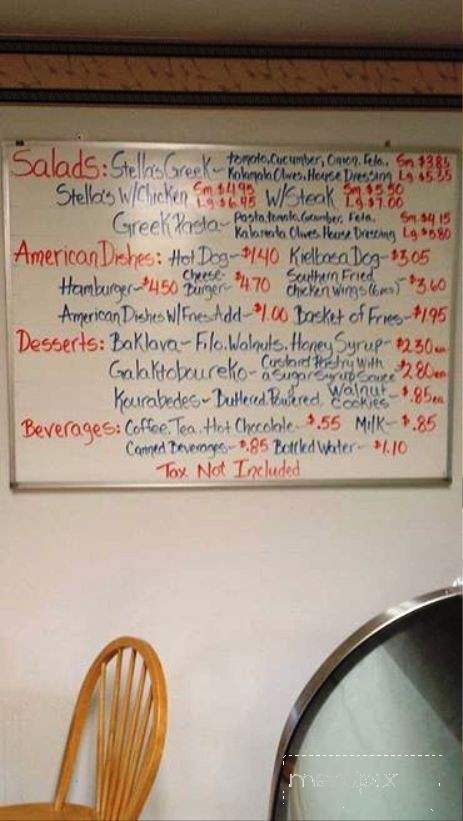 Salads: Stella's Greek - tomato, Cucumber, Onion, Feta, Sm. $3.85
Kalamata Olives, House Dressing Lg $5.35
Stella's W/Chicken Sm. $4.95 Lg. $6.45 W/Steak Sm. $5.50 Lg. $7.00
Greek Pasta - Pasta, tomato, Cucumber, Feta, Sm. $4.15
Kalamata Olives, House Dressing Lg $5.80
American Dishes: Hot Dog - $1.40 Kielbasa Dog - $3.05
Hamburger - $4.50 Cheese-Burger - $4.70 Southern Fried Chicken Wings (6pcs) - $3.60
American Dishes W/Fries Add - $1.00 Basket of Fries - $1.95
Desserts: Baklava - Filo, Walnuts, Honey Syrup - $2.30 ea.
Galaktoboureko - Custard Pastry With a Sugar Syrup Sauce $2.80 ea.
Kourabedes - Buttered, Powdered, Walnut Cookies - $.85 ea.
Beverages: Coffee, Tea, Hot Chocolate - $.55 Milk - $.85
Canned Beverages - $.85 Bottled Water - $1.10
Tax Not Included
menupix